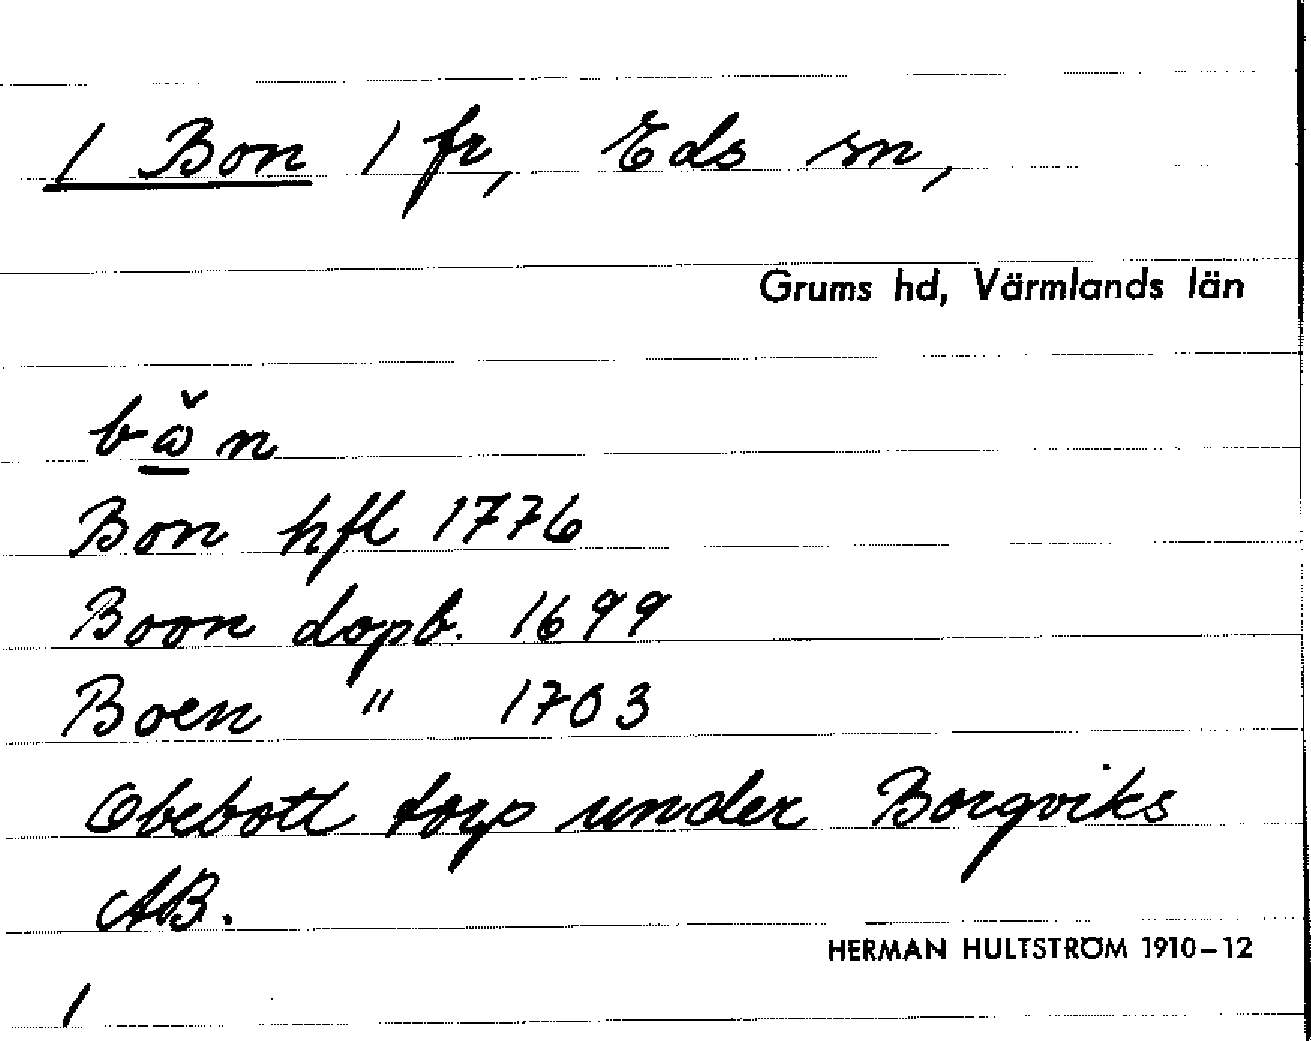 1 Bon 1 fr, Eds sn,
Grums hd, Värmlands län
bω̌n
Bon hfl 1776
Boon dopb. 1699
Boen " 1703
Obebott torp under Borgviks
AB.
HERMAN HULTSTRÖM 1910–12
1